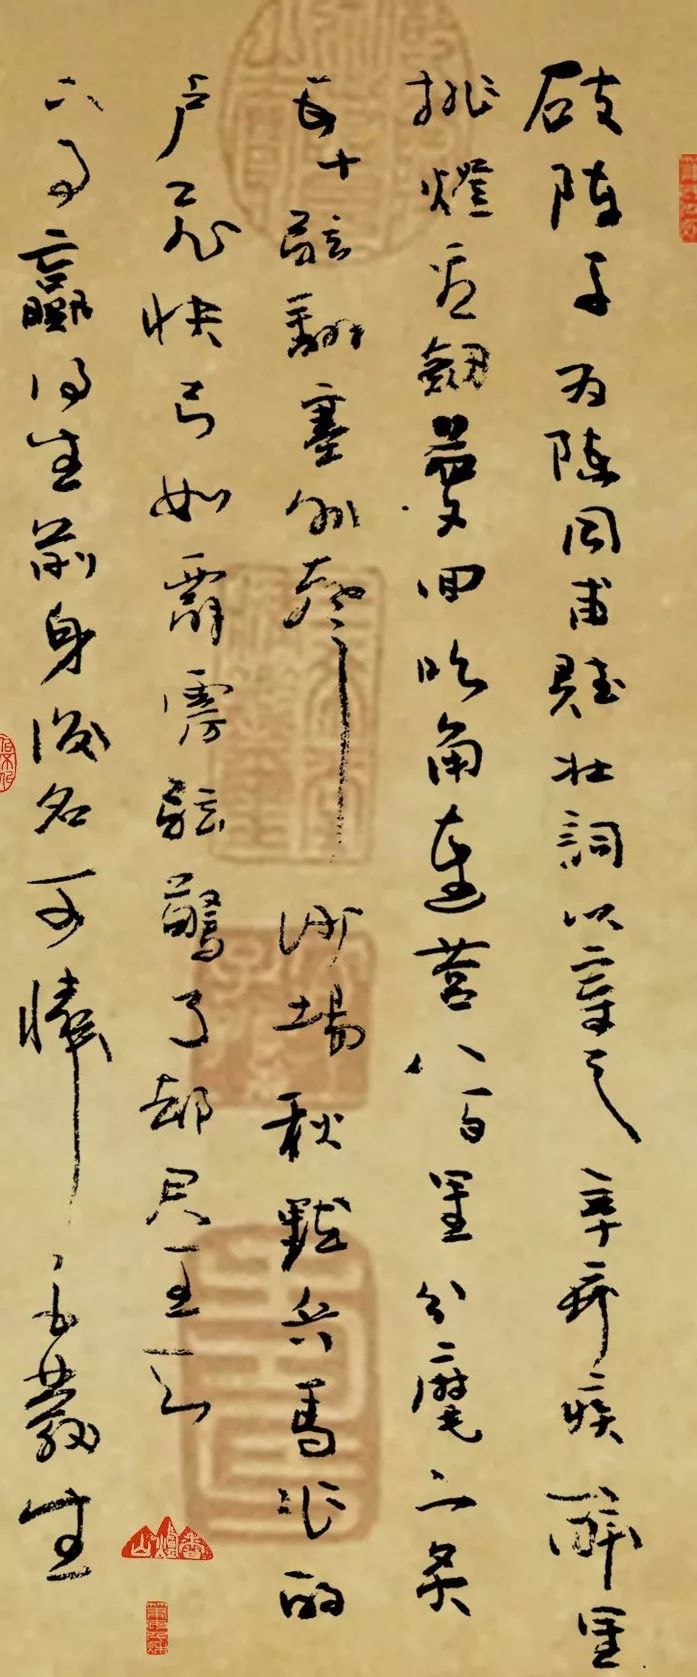 破陣子为陳同甫賦壮詞以寄之 辛弃疾 醉里
挑燈看劔夢回吹角連营八百里分麾下炙
五十弦翻塞外聲 沙場秋點兵馬作的
卢飛快弓如霹靂弦驚了却君王天
下事贏得生前身後名可憐 白發生
香爐山